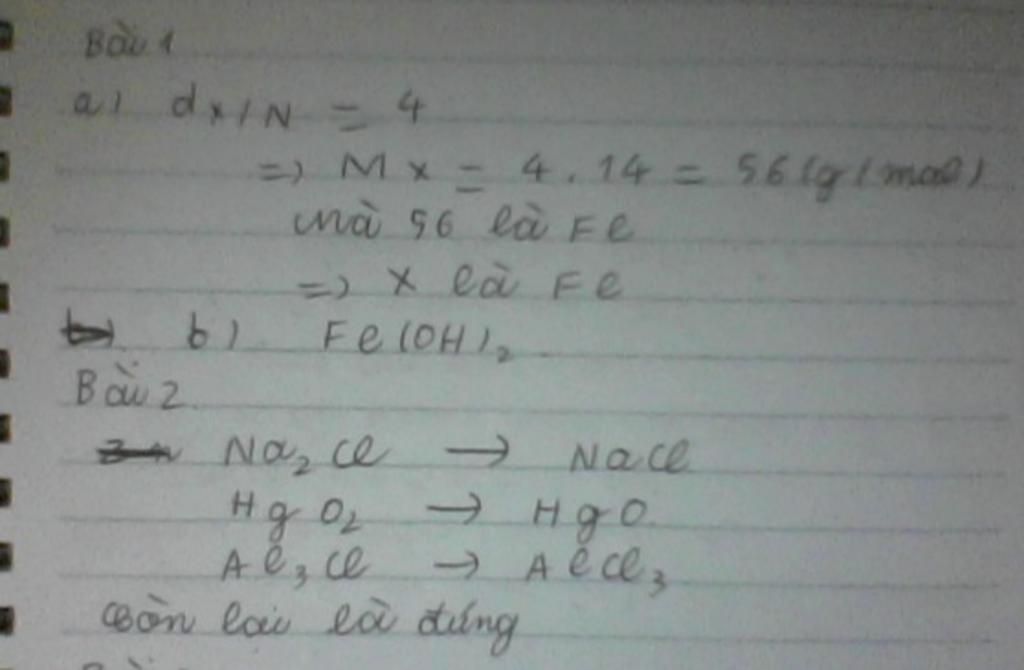 Bài 1
a) dx/N = 4
=> Mx = 4.14 = 56 (g/mol)
mà 56 là Fe
=> X là Fe
b) Fe(OH)₂
Bài 2
Na₂Cl → NaCl
HgO₂ → HgO
Al₃Cl → AlCl₃
còn lại là đúng